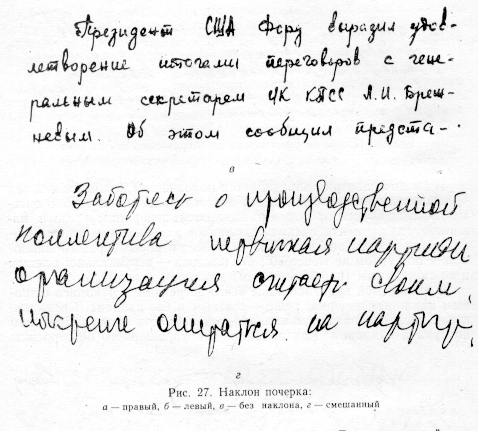 Президент США Форд выразил удов-
летворение итогами переговоров с гене-
ральным секретарем ЦК КПСС Л.И. Бреж-
невым. Об этом сообщил предста-
в
Заботясь о производственной
коллектива первичная
организация считает своим
опираться на
г
Рис. 27. Наклон почерка:
а — правый, б — левый, в — без наклона, г — смешанный